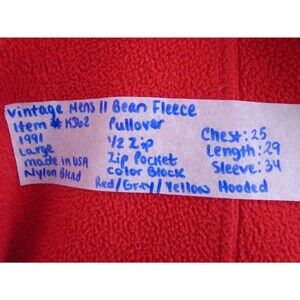 Vintage Mens ll Bean Fleece
Item # K362 Pullover
1991 1/2 Zip Chest: 25
Large Zip Pocket Length: 29
made in USA Color Block Sleeve: 34
Nylon Blend Red/Grey/Yellow Hooded